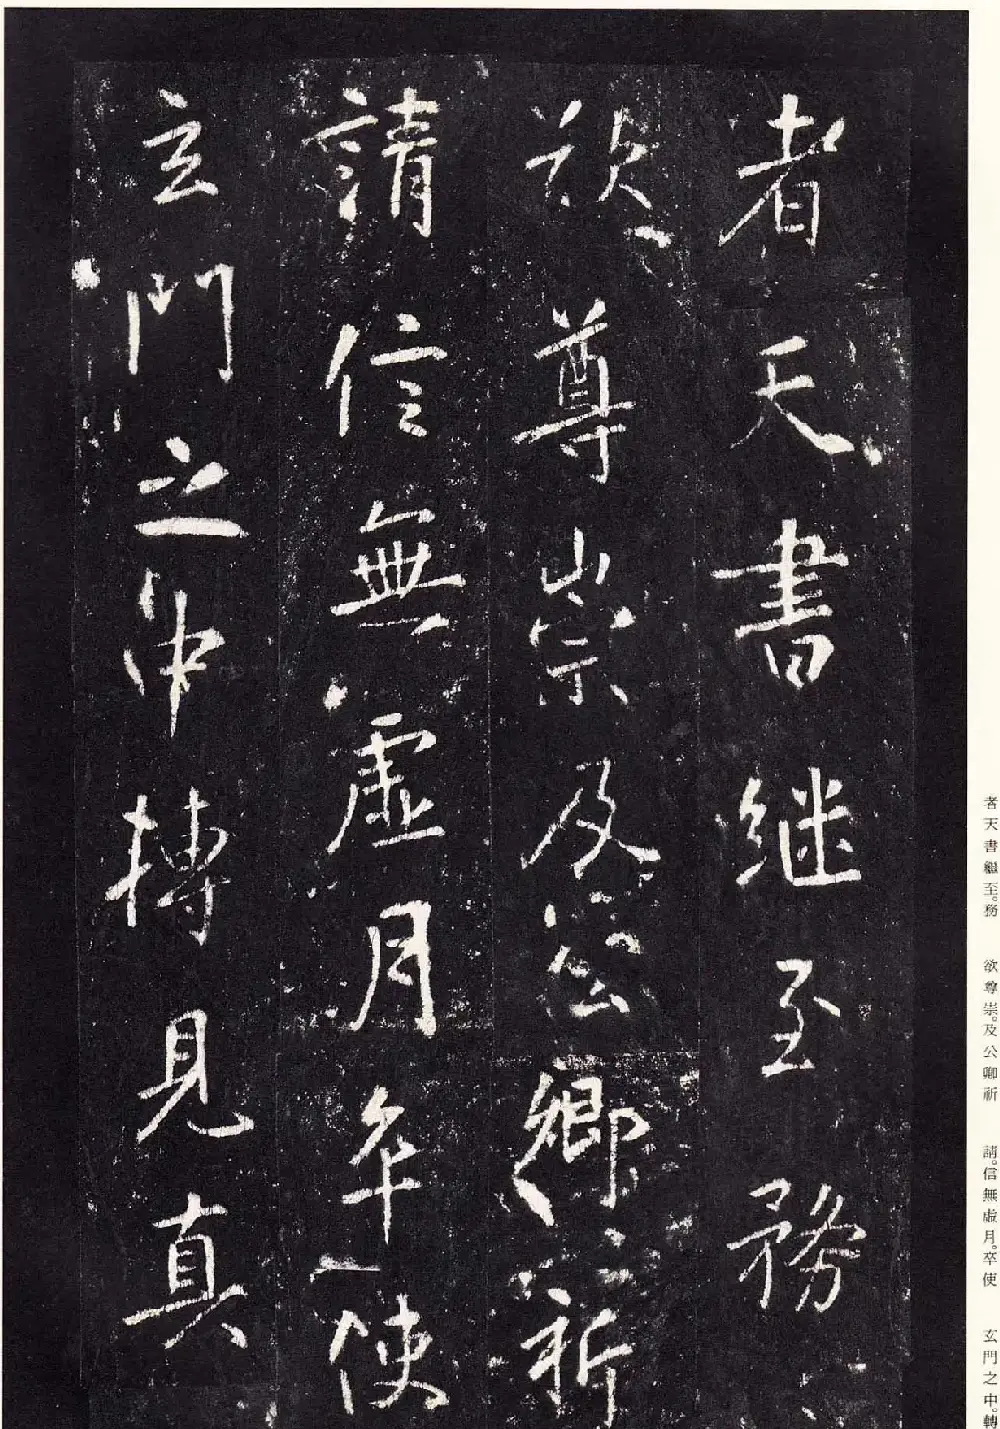 者天書繼至務
欲尊崇及公卿祈
請信無虛月卒使
玄門之中轉見真
者天書繼至。務　欲尊崇。及公卿祈　請。信無虛月。卒使　玄門之中。轉